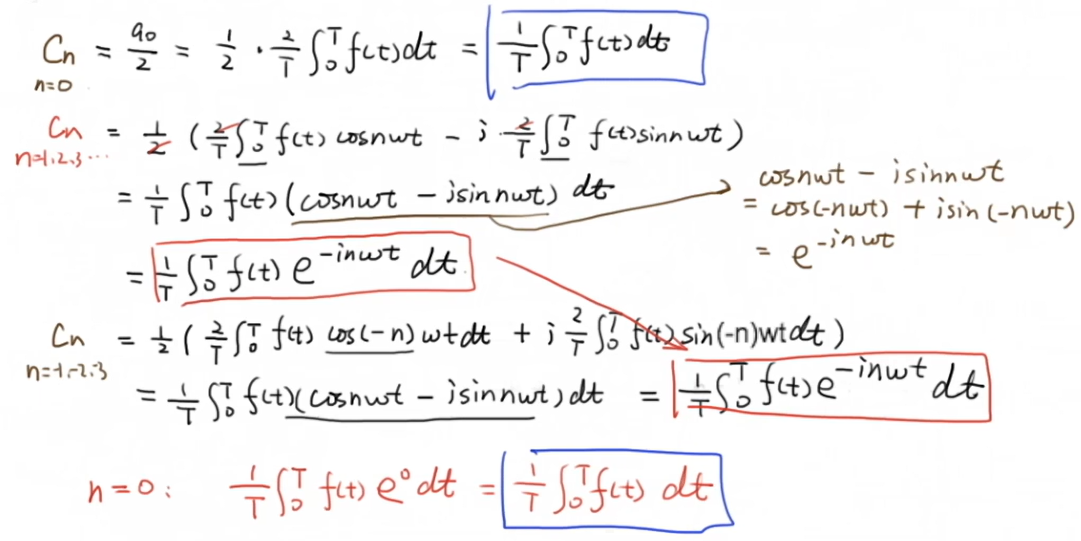 Cn = a0/2 = 1/2 · 2/T ∫₀ᵀ f(t)dt = 1/T ∫₀ᵀ f(t)dt
n=0
Cn = 1/2 (2/T ∫₀ᵀ f(t) cosnwt - i · 2/T ∫₀ᵀ f(t)sinnwt)
n=1.2.3...
= 1/T ∫₀ᵀ f(t)(cosnwt - isinnwt) dt
cosnwt - isinnwt
= cos(-nwt) + isin(-nwt)
= e^-inwt
= 1/T ∫₀ᵀ f(t) e^-inwt dt
Cn = 1/2 (2/T ∫₀ᵀ f(t) cos(-n)wtdt + i 2/T ∫₀ᵀ f(t)sin(-n)wtdt)
n=-1.-2.-3
= 1/T ∫₀ᵀ f(t)(cosnwt - isinnwt)dt = 1/T ∫₀ᵀ f(t)e^-inwt dt
n=0: 1/T ∫₀ᵀ f(t) e⁰ dt = 1/T ∫₀ᵀ f(t) dt